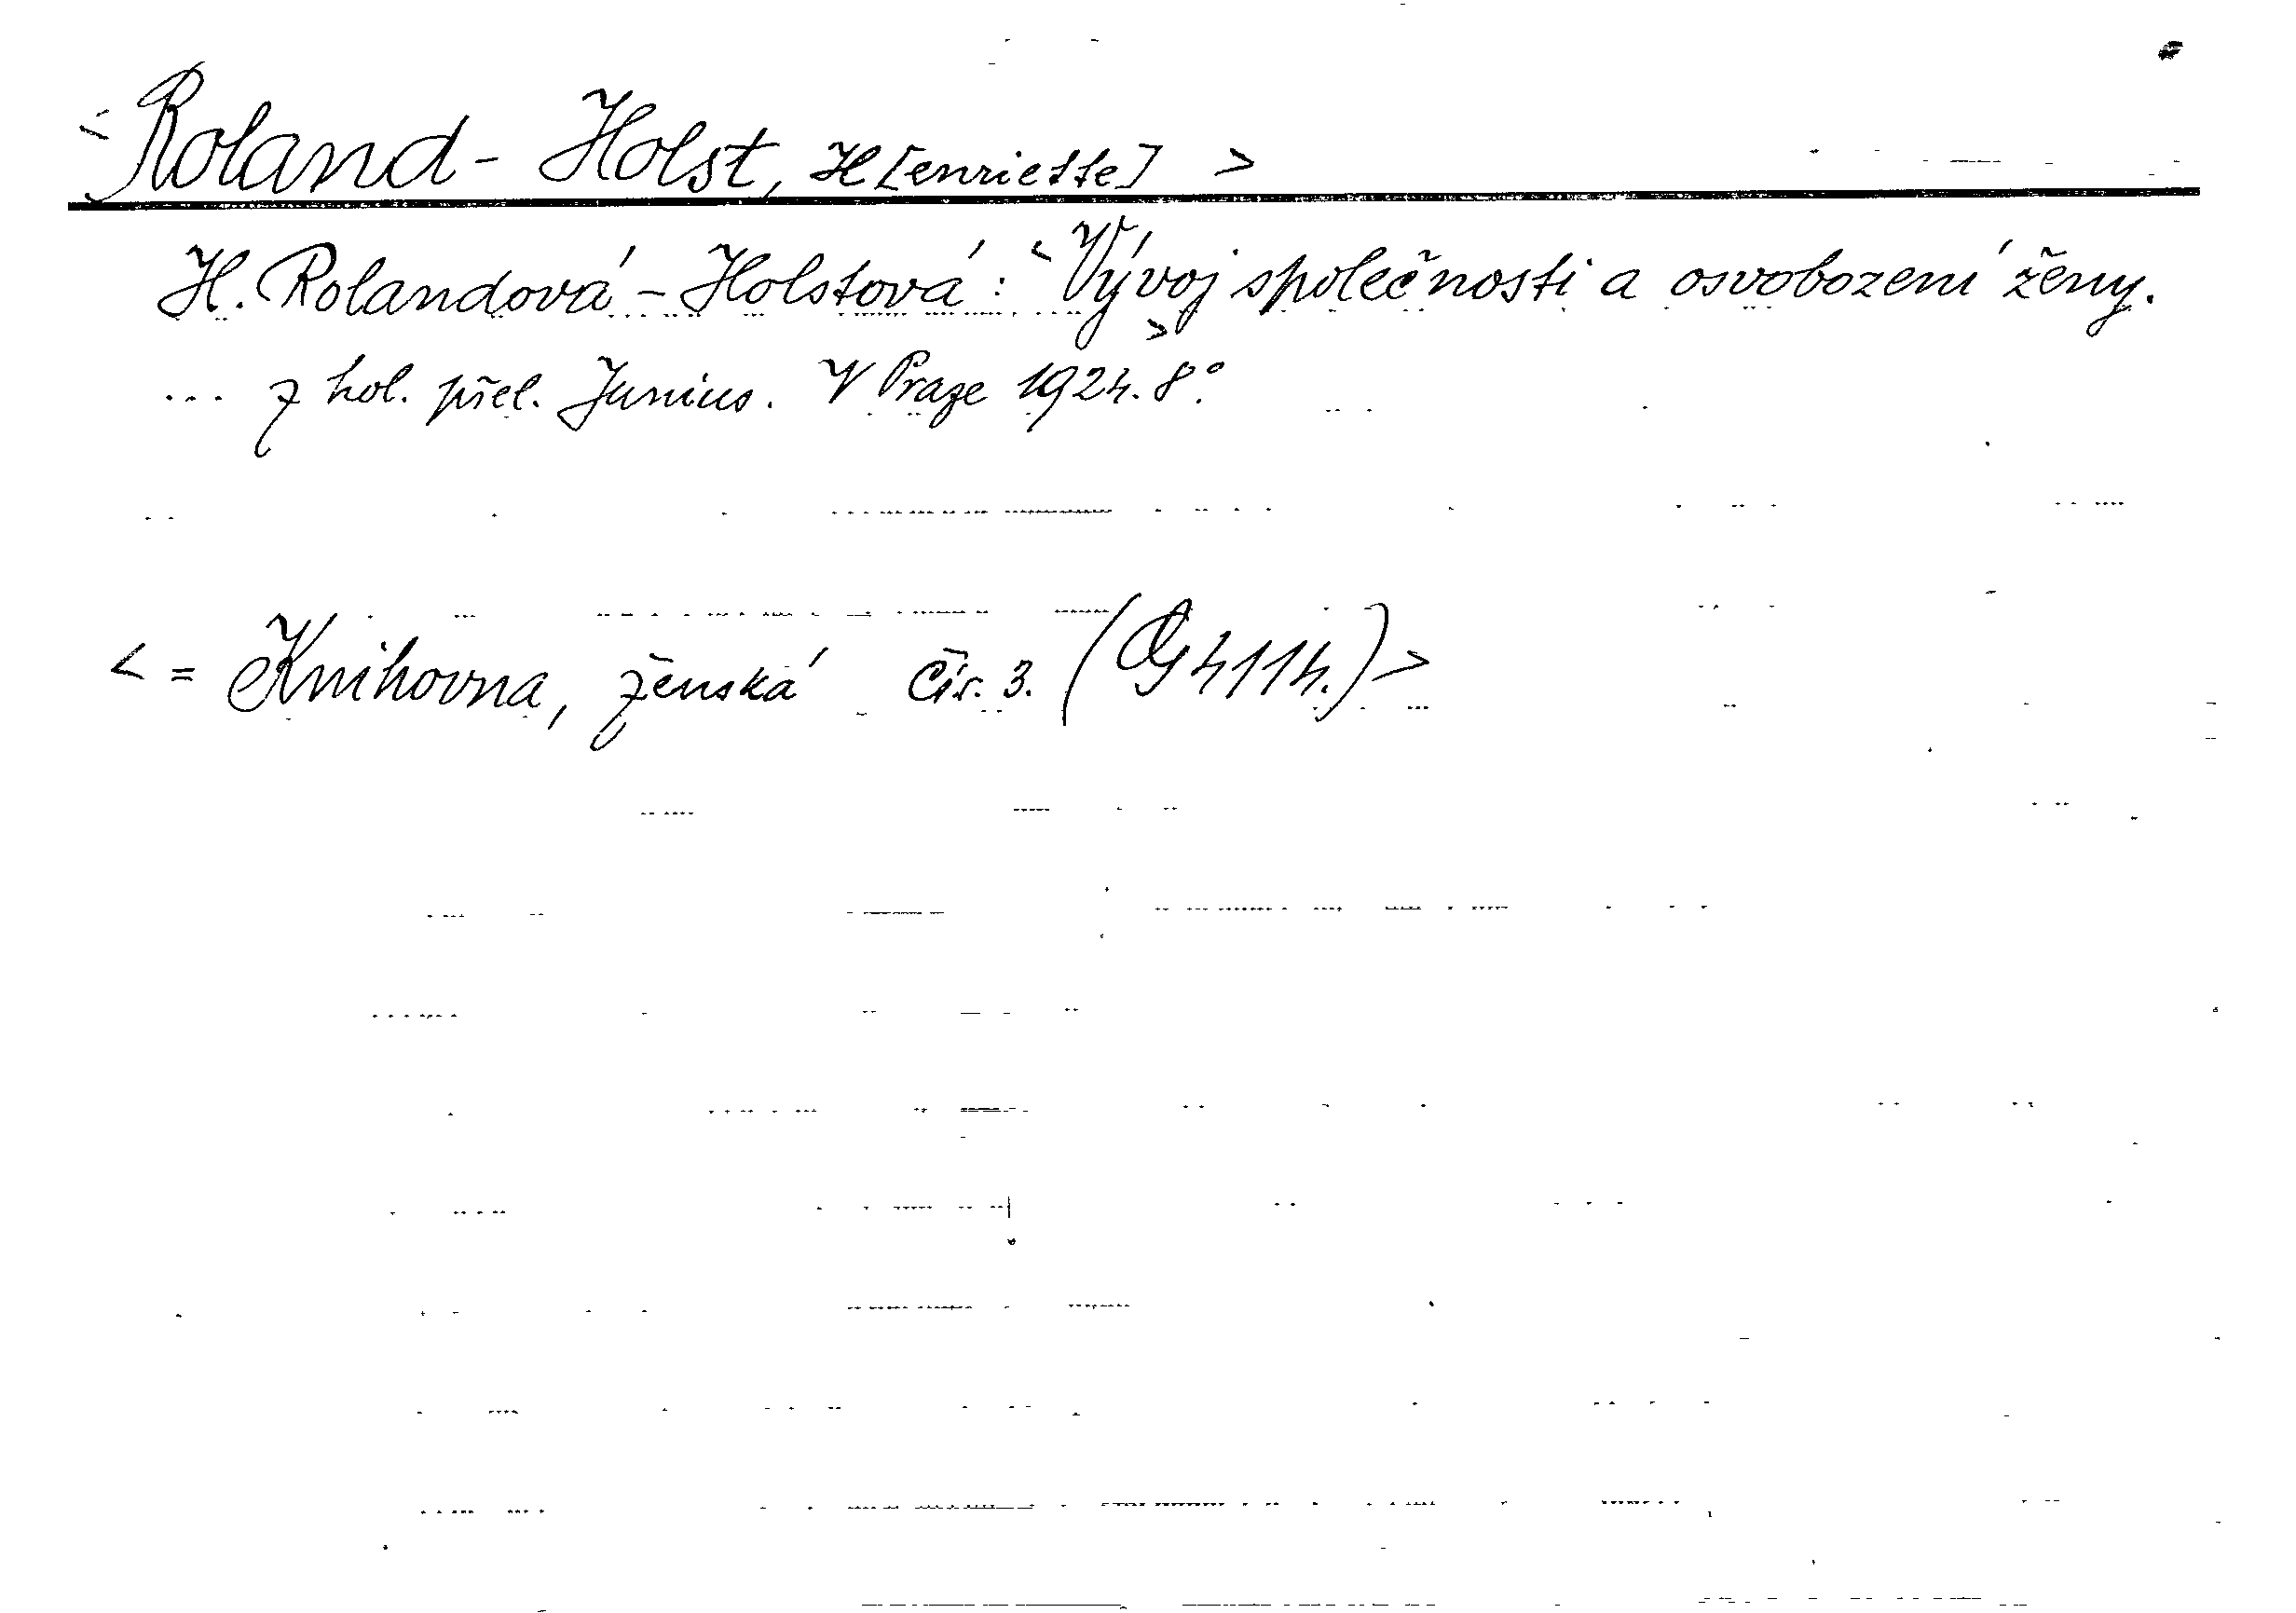 <Roland-Holst, H[enriette] >
H. Rolandová-Holstová: <Vývoj společnosti a osvobození ženy.
> ... z hol. přel. Junius. V Praze 1924. 8°.
< = Knihovna, ženská čís. 3. (G 4114.)>